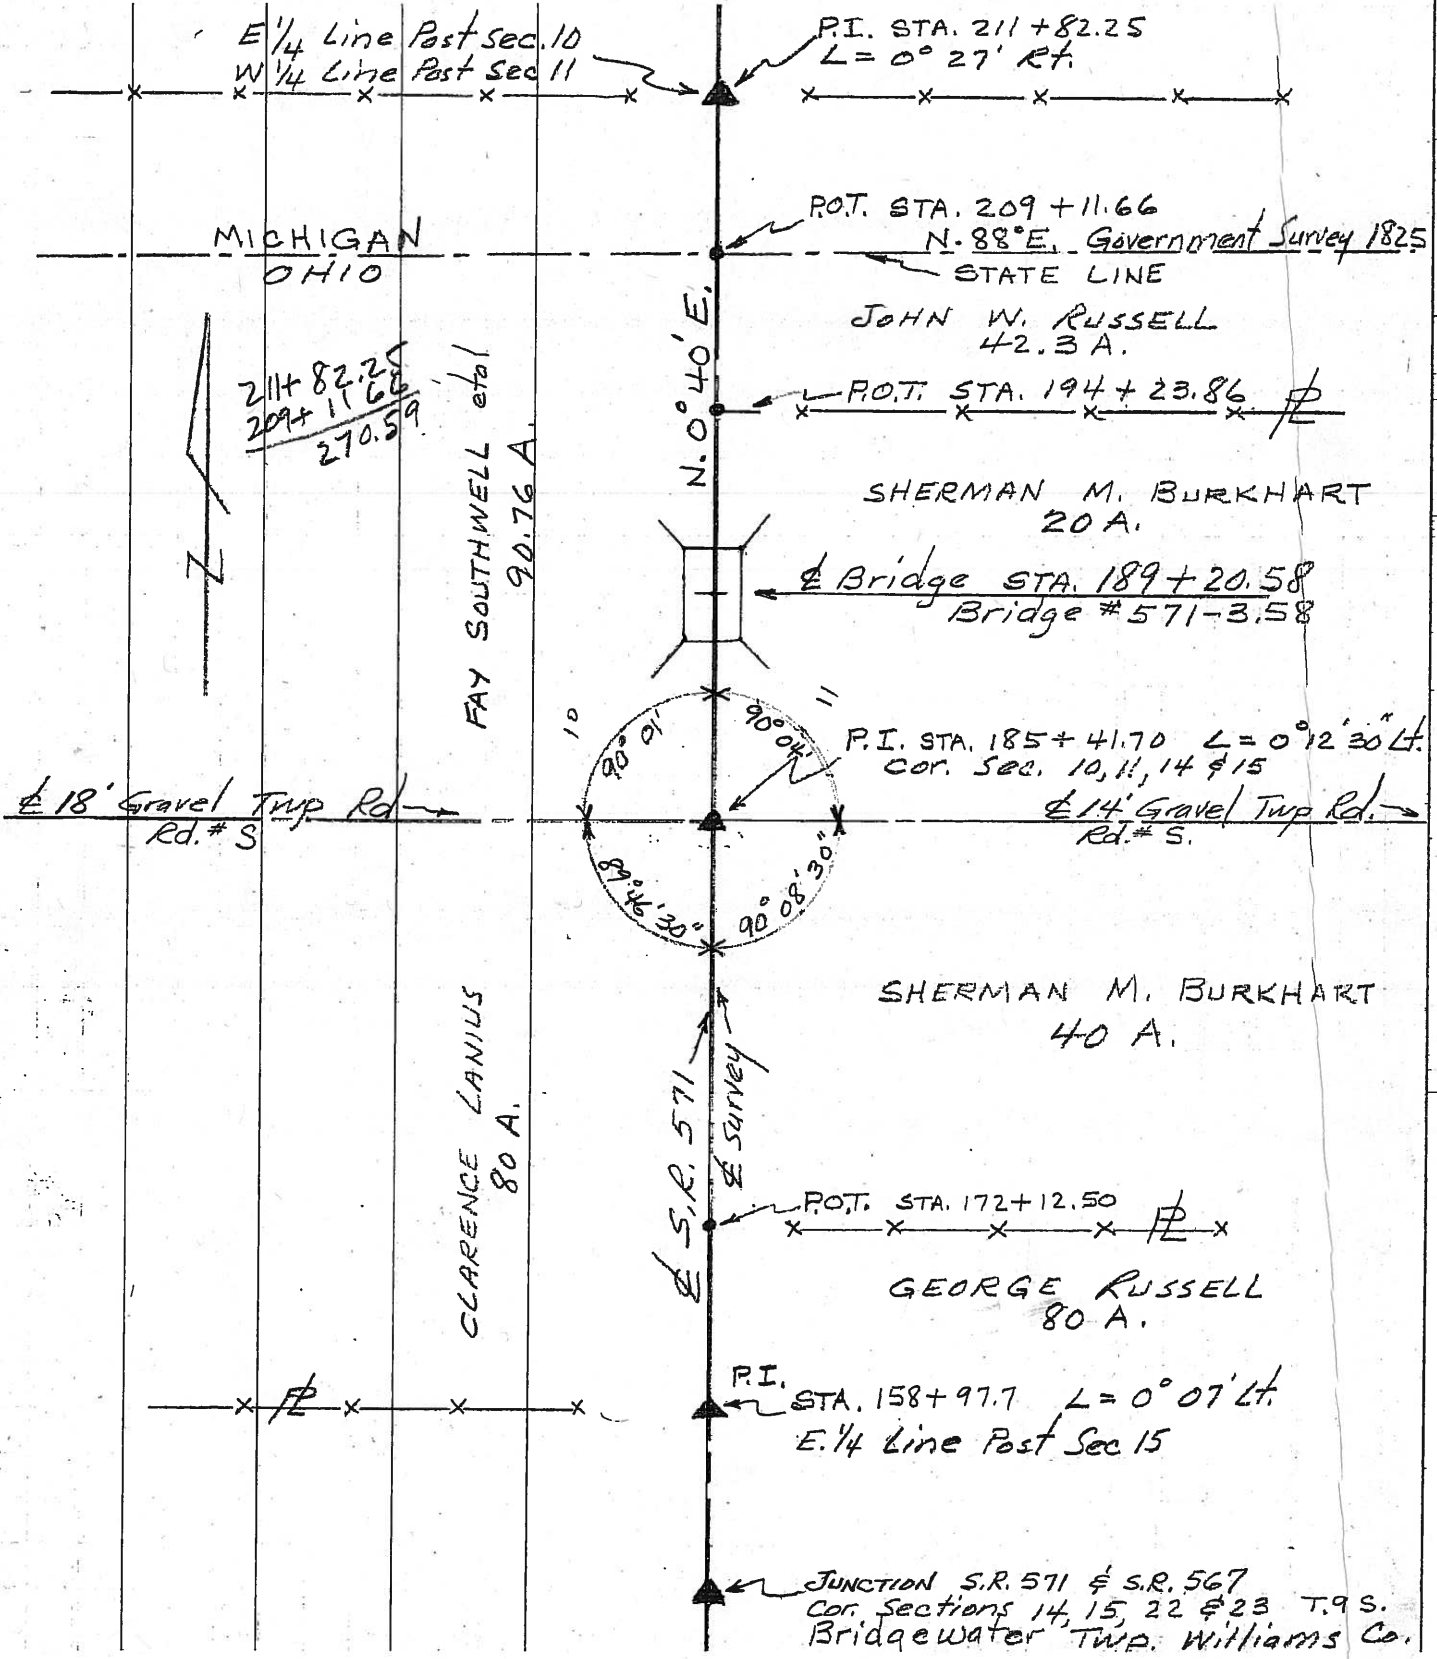 E 1/4 Line Post Sec. 10
W 1/4 Line Post Sec 11
P.I. STA. 211 + 82.25
L = 0° 27' Rt.
P.O.T. STA. 209 + 11.66
N. 88° E. Government Survey 1825
MICHIGAN
OHIO
STATE LINE
JOHN W. RUSSELL
42.3 A.
211+ 82.25
209+ 11 66
270.59
N
FAY SOUTHWELL etal
90.76 A.
N. 0° 40' E.
P.O.T. STA. 194 + 23.86 PL
SHERMAN M. BURKHART
20 A.
₵ Bridge STA. 189 + 20.58
Bridge # 571-3.58
10
11
90° 01'
90° 04'
P.I. STA. 185 + 41.70 L = 0° 12' 30" Lt.
Cor. Sec. 10, 11, 14 & 15
₵ 18' Gravel Twp Rd
Rd. # S
₵ 14' Gravel Twp Rd.
Rd. # S.
89° 46' 30"
90° 08' 30"
SHERMAN M. BURKHART
40 A.
CLARENCE LANIUS
80 A.
₵ S.R. 571
₵ Survey
P.O.T. STA. 172 + 12.50 PL
GEORGE RUSSELL
80 A.
PL
P.I.
STA. 158 + 97.7 L = 0° 07' Lt.
E. 1/4 Line Post Sec 15
JUNCTION S.R. 571 & S.R. 567
Cor. Sections 14, 15, 22 & 23 T.9 S.
Bridgewater Twp. Williams Co.